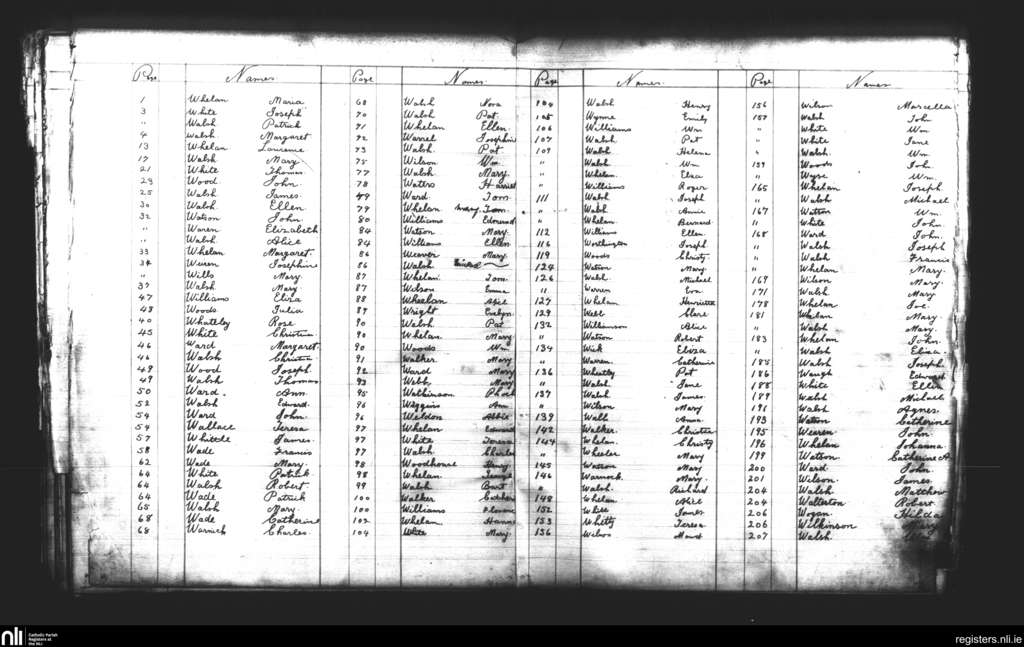 Page Names Page Names Page Names Page Names
1 Whelan Maria
3 White Joseph
" Walsh Patrick
4 Walsh Margaret
13 Whelan Laurence
17 Walsh Mary
21 White Thomas
23 Wood John
25 Walsh James
30 Walsh Ellen
32 Watson John
" Waren Elizabeth
" Walsh Alice
33 Whelan Margaret
34 Josephine
" Wills Mary
37 Walsh Mary
47 Williams Eliza
43 Woods Julia
40 Whateley Rose
45 White Christina
46 Ward Margaret
46 Walsh Christina
49 Wood Joseph
49 Walsh Thomas
50 Ward Ann
52 Walsh Edward
54 Ward John
54 Wallace Teresa
57 Whittle James
58 Wade Francis
62 Wade Mary
64 White Patrick
64 Walsh Robert
64 Wade Patrick
65 Walsh Mary
68 Wade Catherine
68 Warnick Charles
68 Walsh Nora
70 Walsh Pat
71 Whelan Ellen
72 Warrel Josephine
73 Walsh Pat
75 Wilson Wm
77 Walsh Mary
78 Waters Harriet
79 Ward Tom
79 Whelan Mary
80 Williams Edmund
84 Watson Mary
84 Williams Ellen
86 Weever Mary
86 Walsh
87 Whelan Tom
87 Wilson Emma
88 Wheelan Alice
89 Wright Evelyn
90 Walsh Pat
90 Whelan Mary
90 Woods Wm
91 Walker Mary
92 Ward Mary
93 Webb Mary
95 Watkinson
96 Wiggins Ann
96 Weldon Abbie
97 Whelan Edward
97 White Teresa
97 Walsh Charles
98 Woodhouse Henry
98 Whelan
99 Walsh
100 Walker Catherine
100 Williams Florence
102 Whelan Hanna
104 White Mary
104 Walsh Henry
105 Wynne Emily
106 Williams Wm
107 Walsh Pat
109 Walsh Helena
" Walsh Wm
" Whelan Eliza
" Williams Roger
111 Walsh Joseph
" Walsh Annie
" Whelan Bernard
112 Williams Ellen
116 Worthington Joseph
119 Woods Christy
124 Watson Mary
126 Walsh Michael
" Warren Eva
127 Whelan Henrietta
129 Webb Clare
132 Williamson Alice
" Watson Robert
134 Wick Eliza
" Warren Catherine
136 Wheatley Pat
" Walsh Jane
137 Walsh James
" Wilson Mary
139 Walsh Anna
142 Walker Christina
144 Whelan Christy
" Wheeler Mary
145 Watson Mary
146 Warnock Mary
" Walsh Richard
148 Whelan Alice
152 White James
153 Whitty Teresa
156 Wilson Maud
156 Wilson Marcella
157 Walsh John
" White Wm
" White Jane
" Walsh Wm
159 Woods Joh.
" Wyse Wm
165 Whelan Joseph
" Walsh Michael
167 Watson Wm
" White John
168 Ward John
" Walsh Joseph
" Walsh Francis
" Whelan Mary
169 Wilson Mary
171 Walsh Mary
178 Whelan Joe
181 Whelan Mary
" Walsh Mary
183 Whelan John
" Walsh Eliza
185 Walsh Joseph
186 Waugh Edward
188 White Ellen
189 Walsh Michael
191 Walsh Agnes
193 Watson Catherine
195 Weeren John
196 Whelan Johanna
199 Watson Catherine A.
200 Ward John
201 Wilson James
204 Walsh Matthew
204 Walterton Robert
206 Wogan Hilda
206 Wilkinson Mary
207 Walsh
nli Catholic Parish
Registers at
the NLI
registers.nli.ie